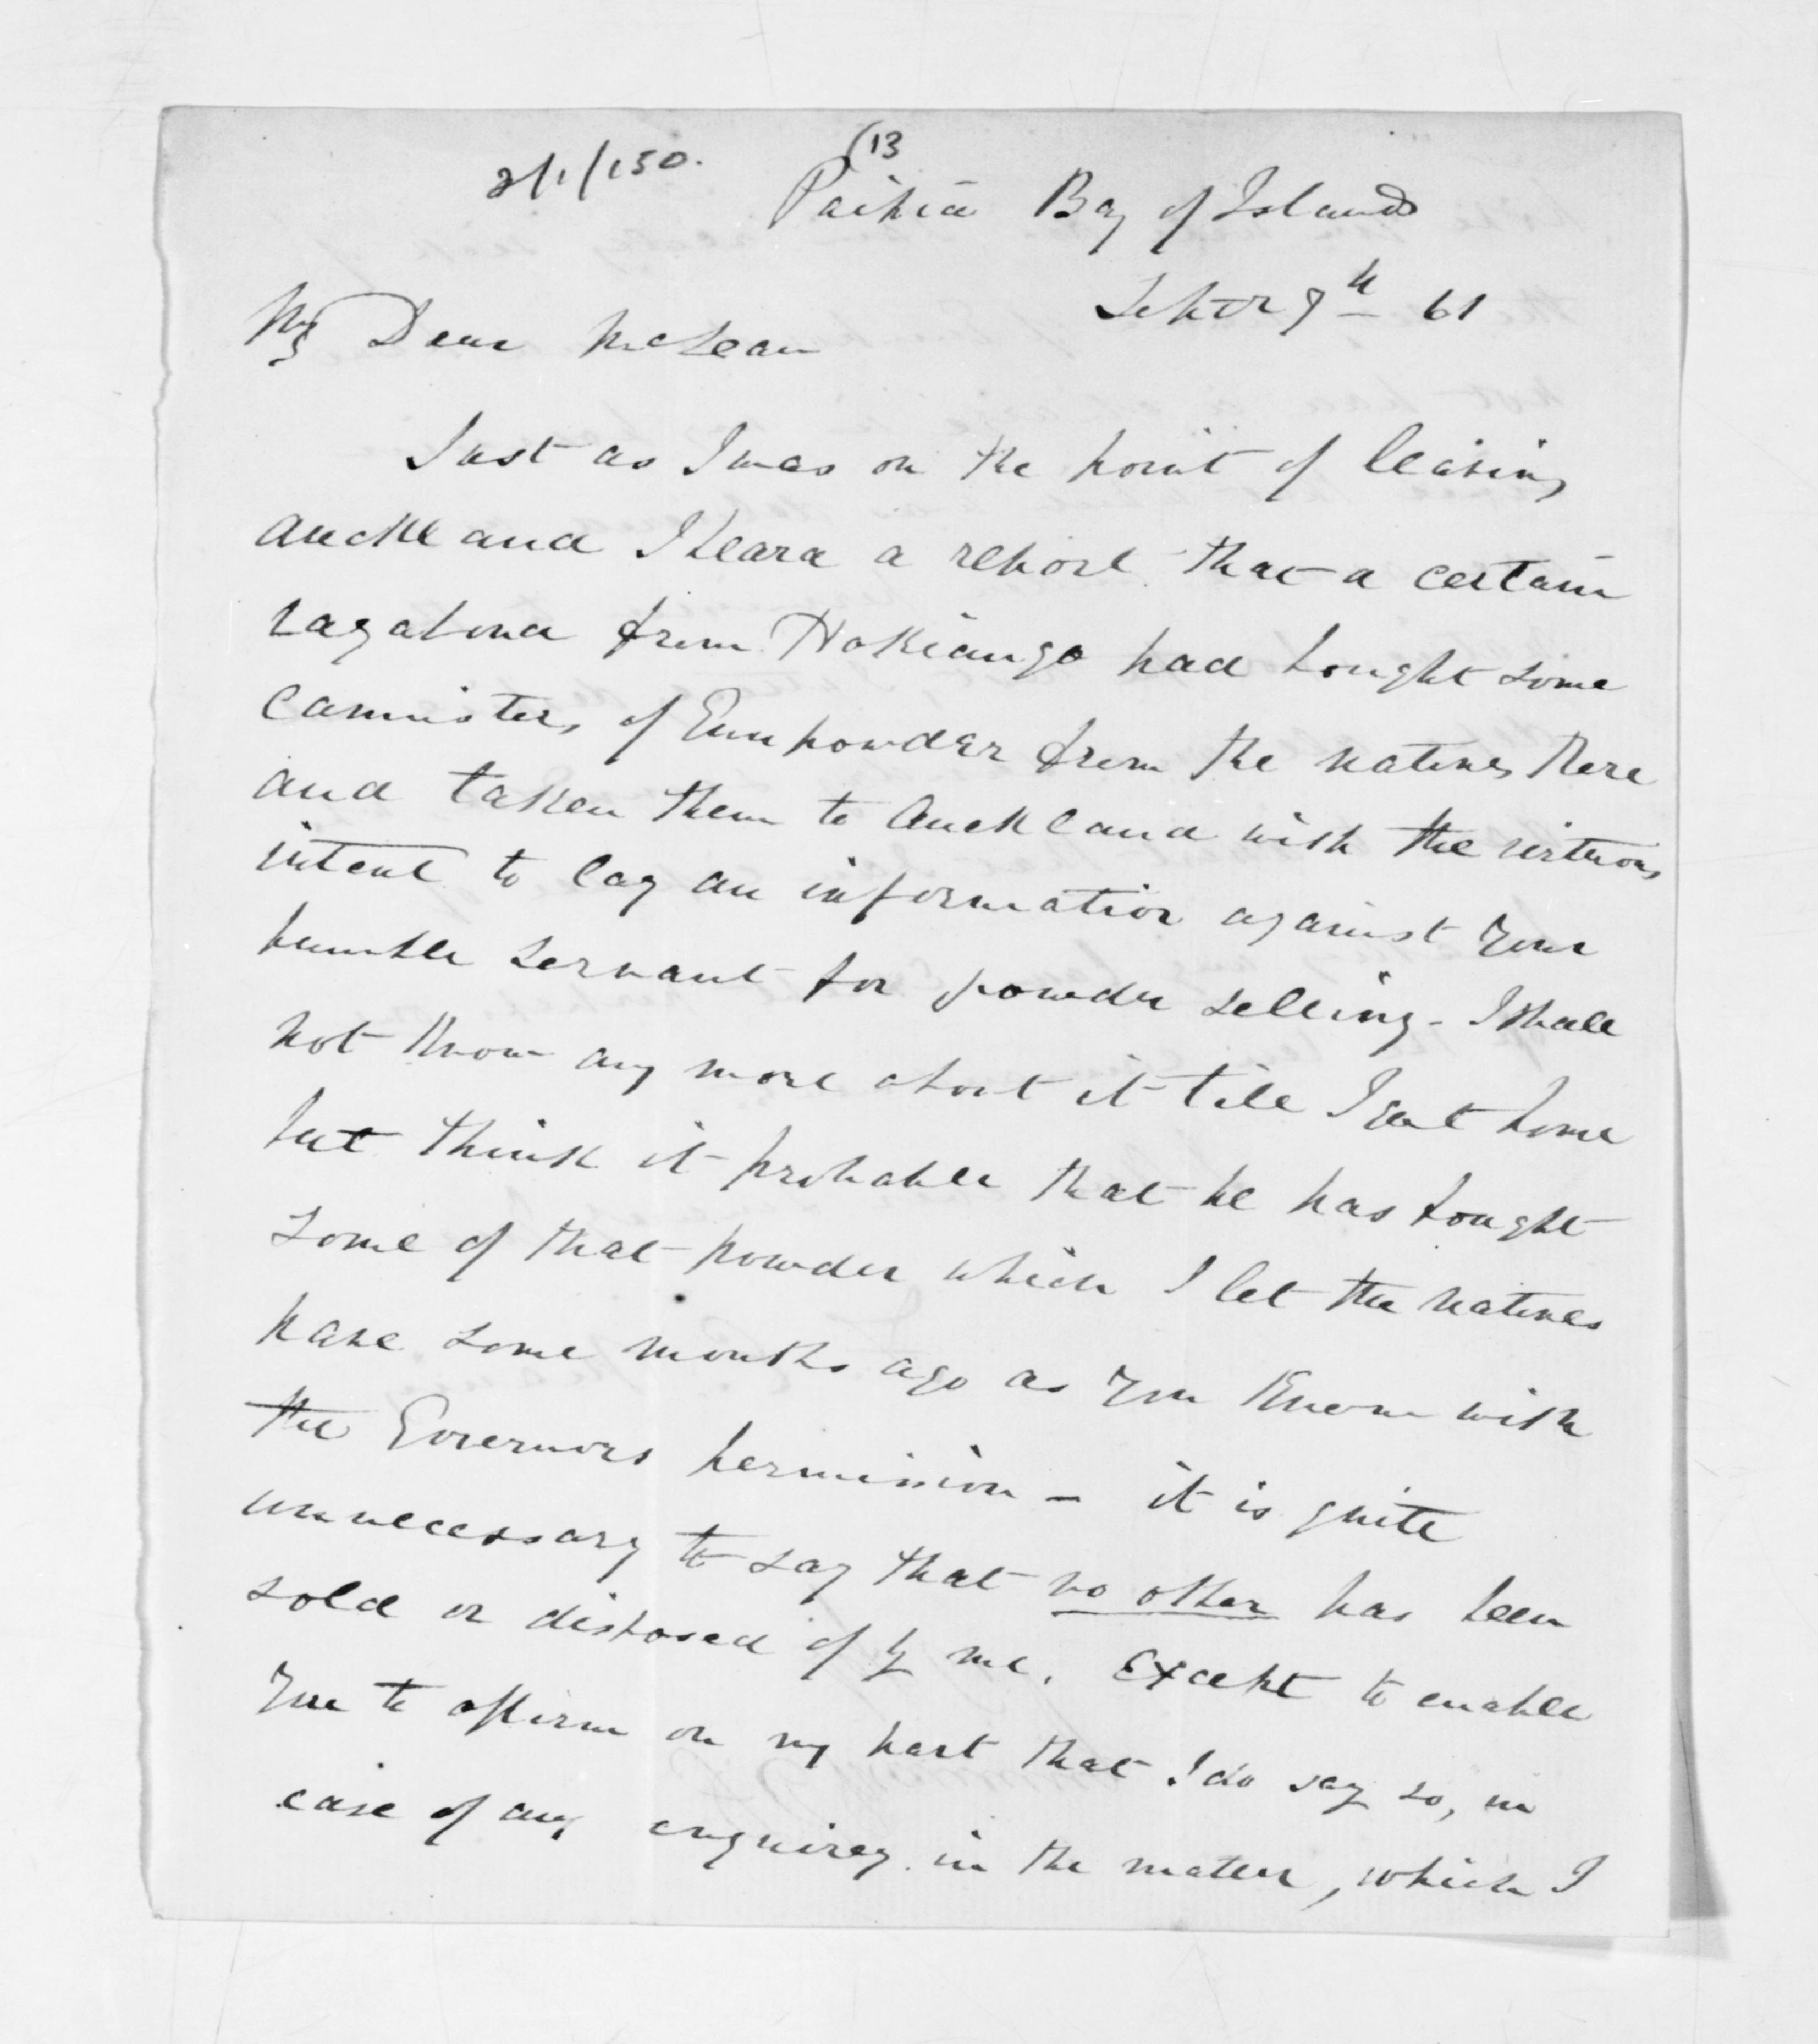 (13
2/1/150.
Paihia Bay of Islands
Septr 9th 61
My Dear McLean
Just as I was on the point of leaving
Auckland I heard a report that a certain
vagabond from Hokianga had bought some
cannisters of Gunpowder from the natives there
and taken them to Auckland with the virtuous
intent to lay an information against your
humble servant for powder selling - I shall
not know any more about it till I get home
but think it probable that he has bought
some of that powder which I let the natives
have some months ago as you know with
the Governors permission - it is quite
unnecessary to say that no other has been
sold or disposed of by me. Except to enable
you to affirm on my part that I do say so, in
case of any enquirey in the matter, which I